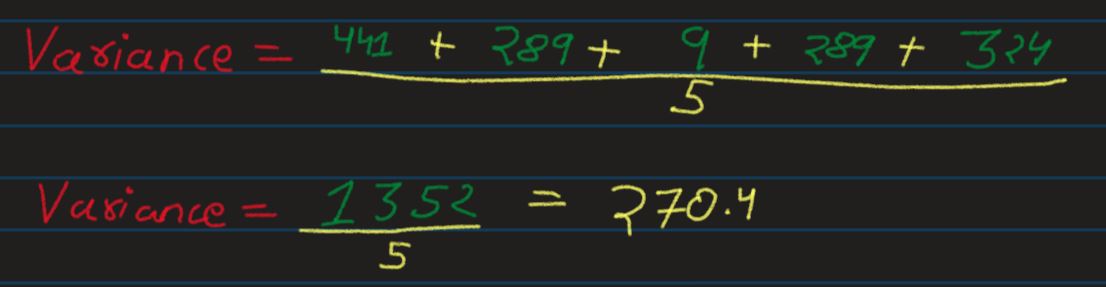 Variance = 441 + 289 + 9 + 289 + 324
5
Variance = 1352 = 270.4
5